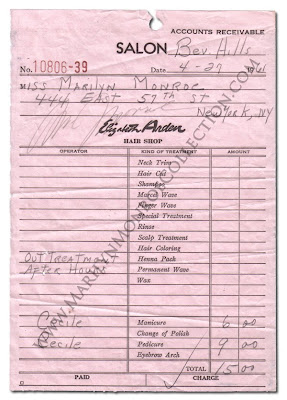 ACCOUNTS RECEIVABLE
SALON Bev Hills
No. 10806-39 Date 4-27 1961
MISS MARILYN MONROE
444 EAST 57th ST
New York, NY
Elizabeth Arden
HAIR SHOP
OPERATOR KIND OF TREATMENT AMOUNT
Neck Trim
Hair Cut
Shampoo
Marcel Wave
Finger Wave
Special Treatment
Rinse
Scalp Treatment
Hair Coloring
Out Treatment Henna Pack
After Hours Permanent Wave
Wax
Cecile Manicure 6 00
Change of Polish
Cecile Pedicure 9 00
Eyebrow Arch
TOTAL 15 00
PAID CHARGE
WWW.MARILYNMONROECOLLECTION.COM